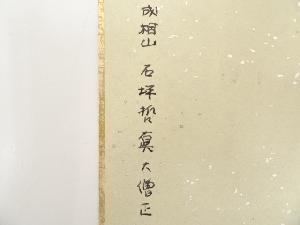 成相山 石坪哲眞大僧正